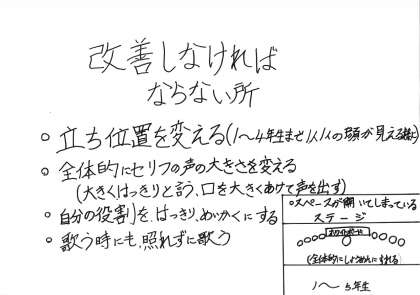 改善しなければ
ならない所
○ 立ち位置を変える(1〜4年生まで1人1人の顔が見える様に)
○ 全体的にセリフの声の大きさを変える
(大きくはっきりと言う、口を大きくあけて声を出す)
○ 自分の役割を、はっきり、めいかくにする
○ 歌う時にも、照れずに歌う
○スペースが開いてしまっている
ステージ
(全体的にしょうめんに
1〜5年生